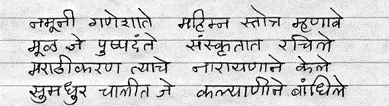 नमूनी गणेशाते महिम्न स्तोत्र म्हणावे
मूळ जे पुष्पदंते संस्कृतात रचिले
मराठीकरण त्याचे नारायणाने केले
सुमधुर चालीत जे कल्याणीने बांधिले